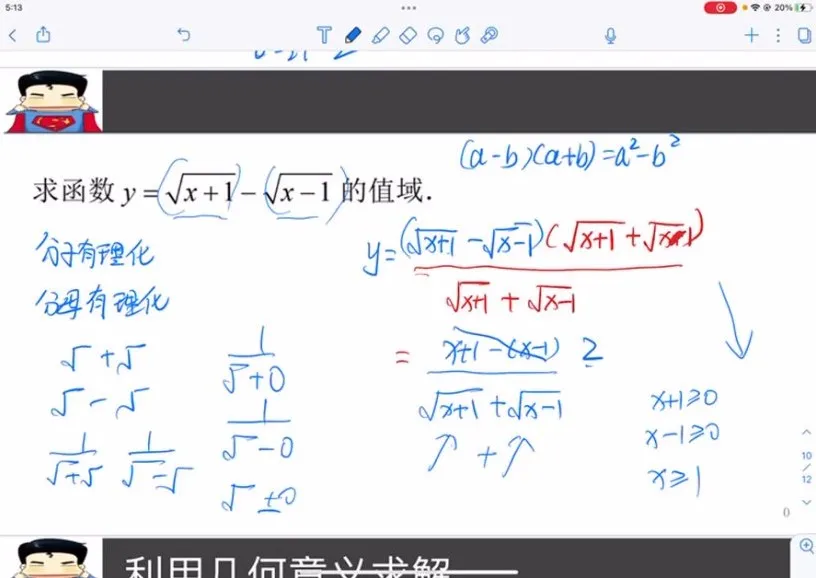 5:13
20%
(a-b)(a+b)=a²-b²
求函数 y=√(x+1)-√(x-1) 的值域.
分子有理化
分母有理化
y=(√(x+1)-√(x-1))(√(x+1)+√(x-1))
√(x+1)+√(x-1)
= x+1-(x-1) 2
√(x+1)+√(x-1)
↗ + ↗
√+√
√-√
1/(√+√) 1/(√-√)
1/(√+0)
1/(√-0)
√±0
x+1≥0
x-1≥0
x≥1
10
/
12
0
利用几何意义求解